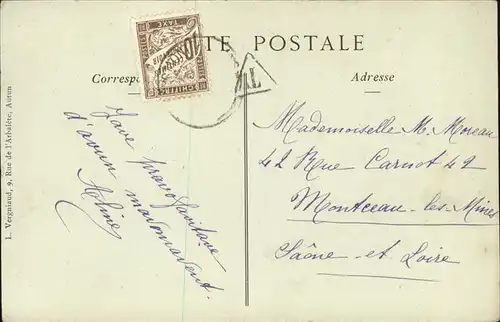 TE POSTALE
Corresp
Adresse
10
CENTIMES
A PERCEVOIR
CHIFFRE
TAXE
T
L. Vergniaud, 9, Rue de l'Arbalète, Autun
d'avun
Aline
Mademoiselle M. Moreau
42 Rue Carnot 42
Montceau-les-Mines
Saône-et-Loire